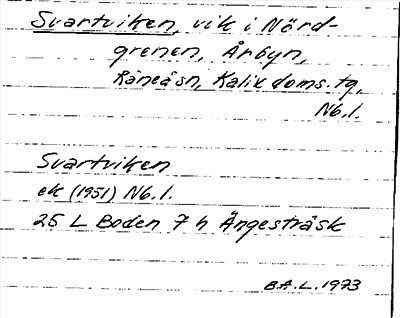 Svartviken, vik i Nörd-
grenen, Årbyn,
Råneåsn, Kalix doms.tg,
Nb.l.
Svartviken
ek (1951) Nb.l.
25 L Boden 7 h Ängesträsk
B.A.L. 1973